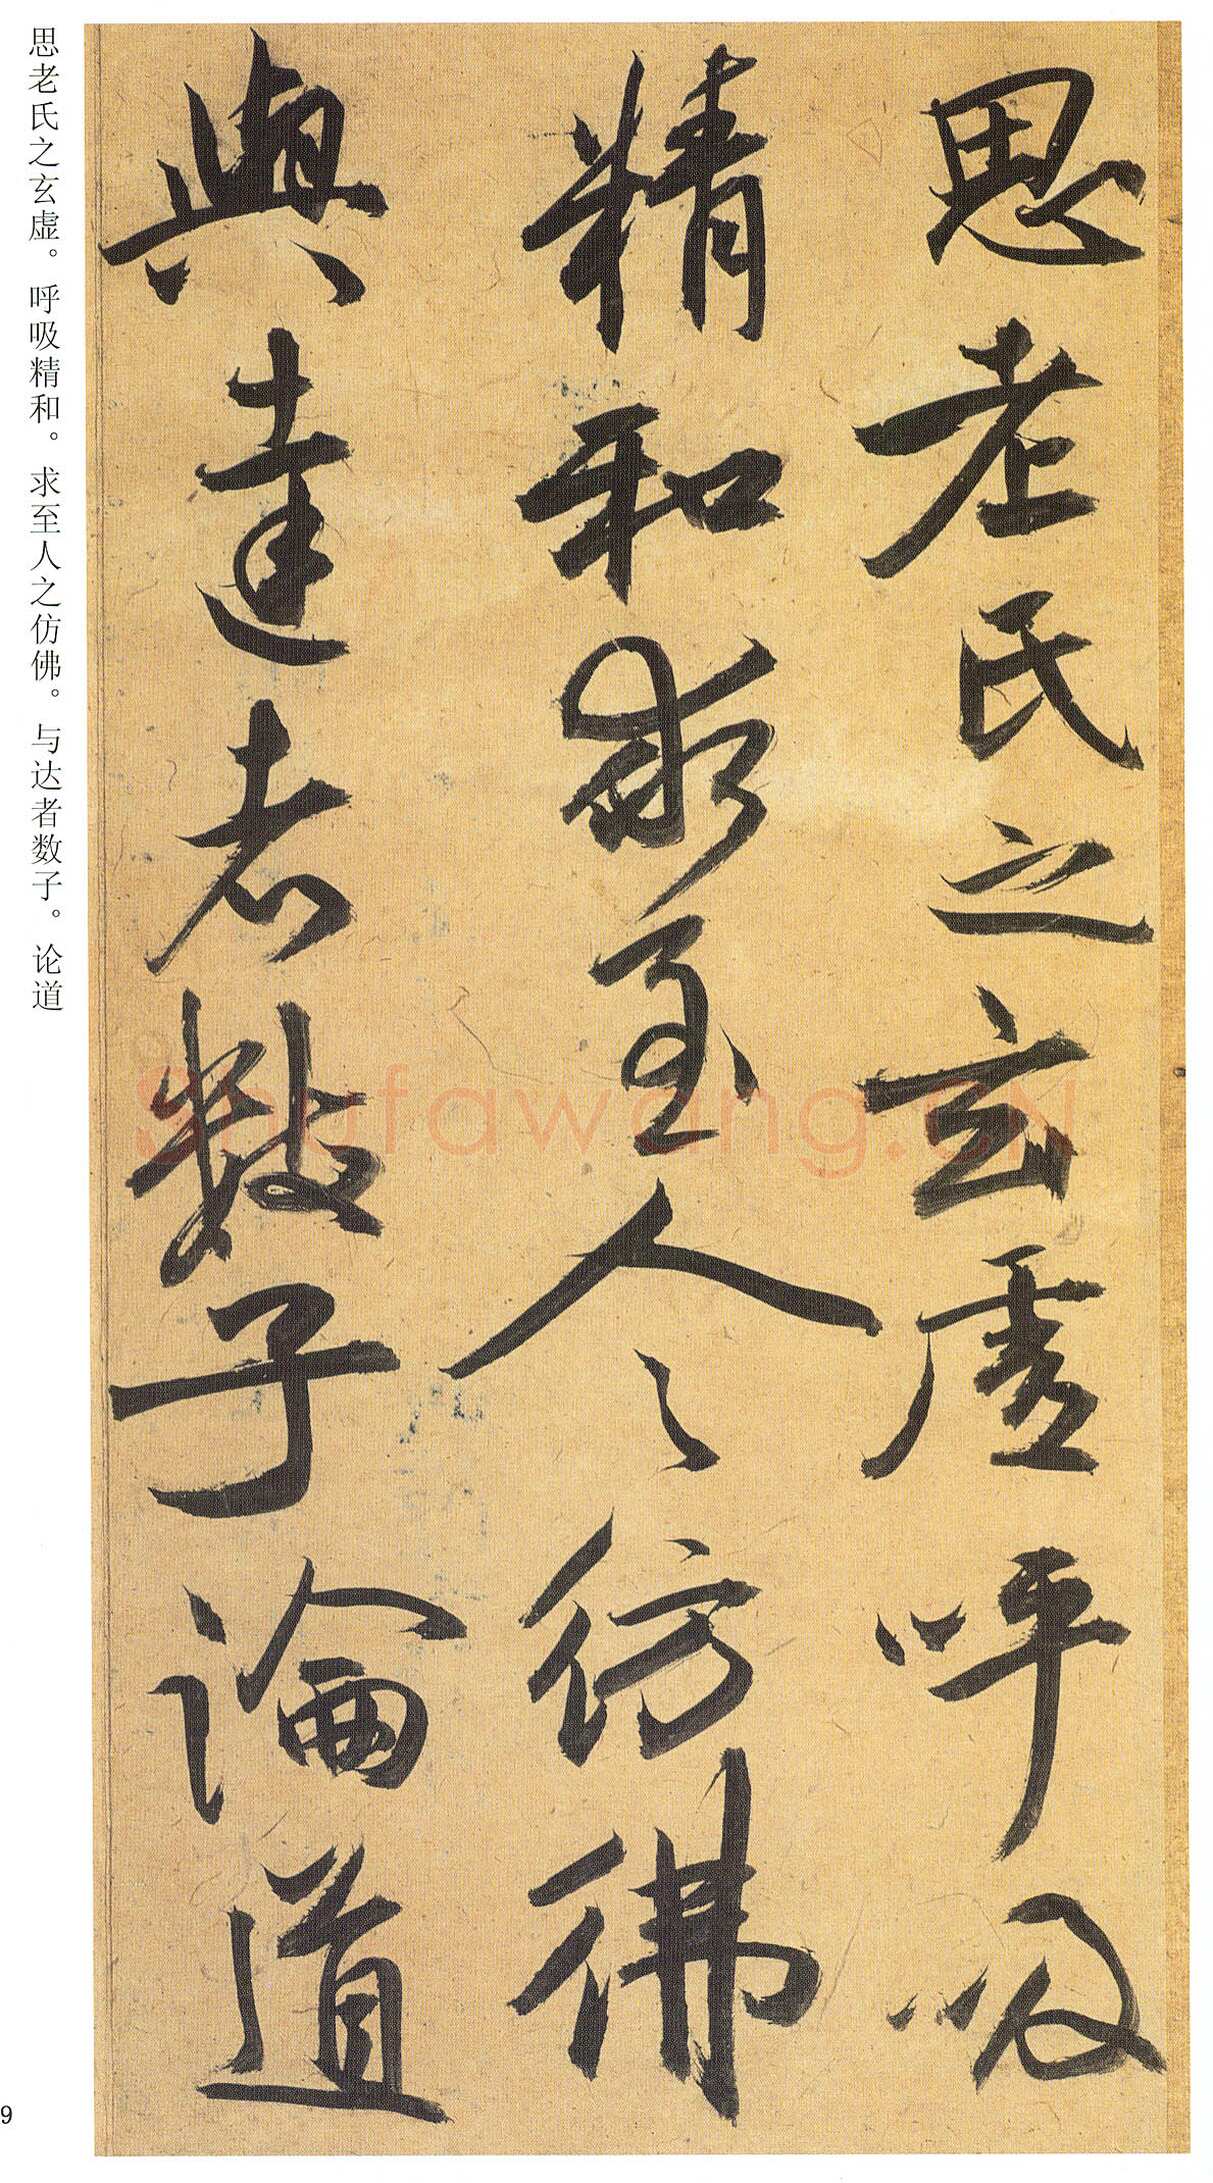 思老氏之玄虛呼吸
精和求至人之仿佛
與達者數子論道
思老氏之玄虚。呼吸精和。求至人之仿佛。与达者数子。论道
Shufawang.CN
9